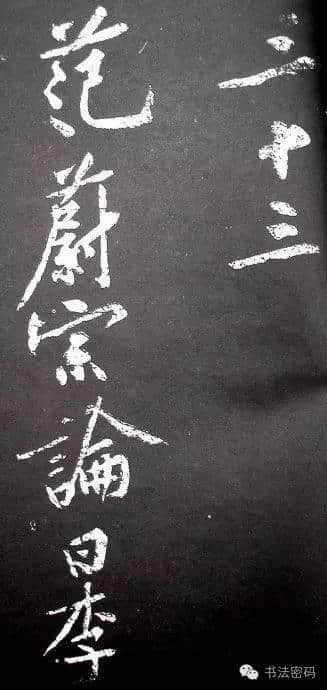 三十三
范蔚宗論曰李
书法密码